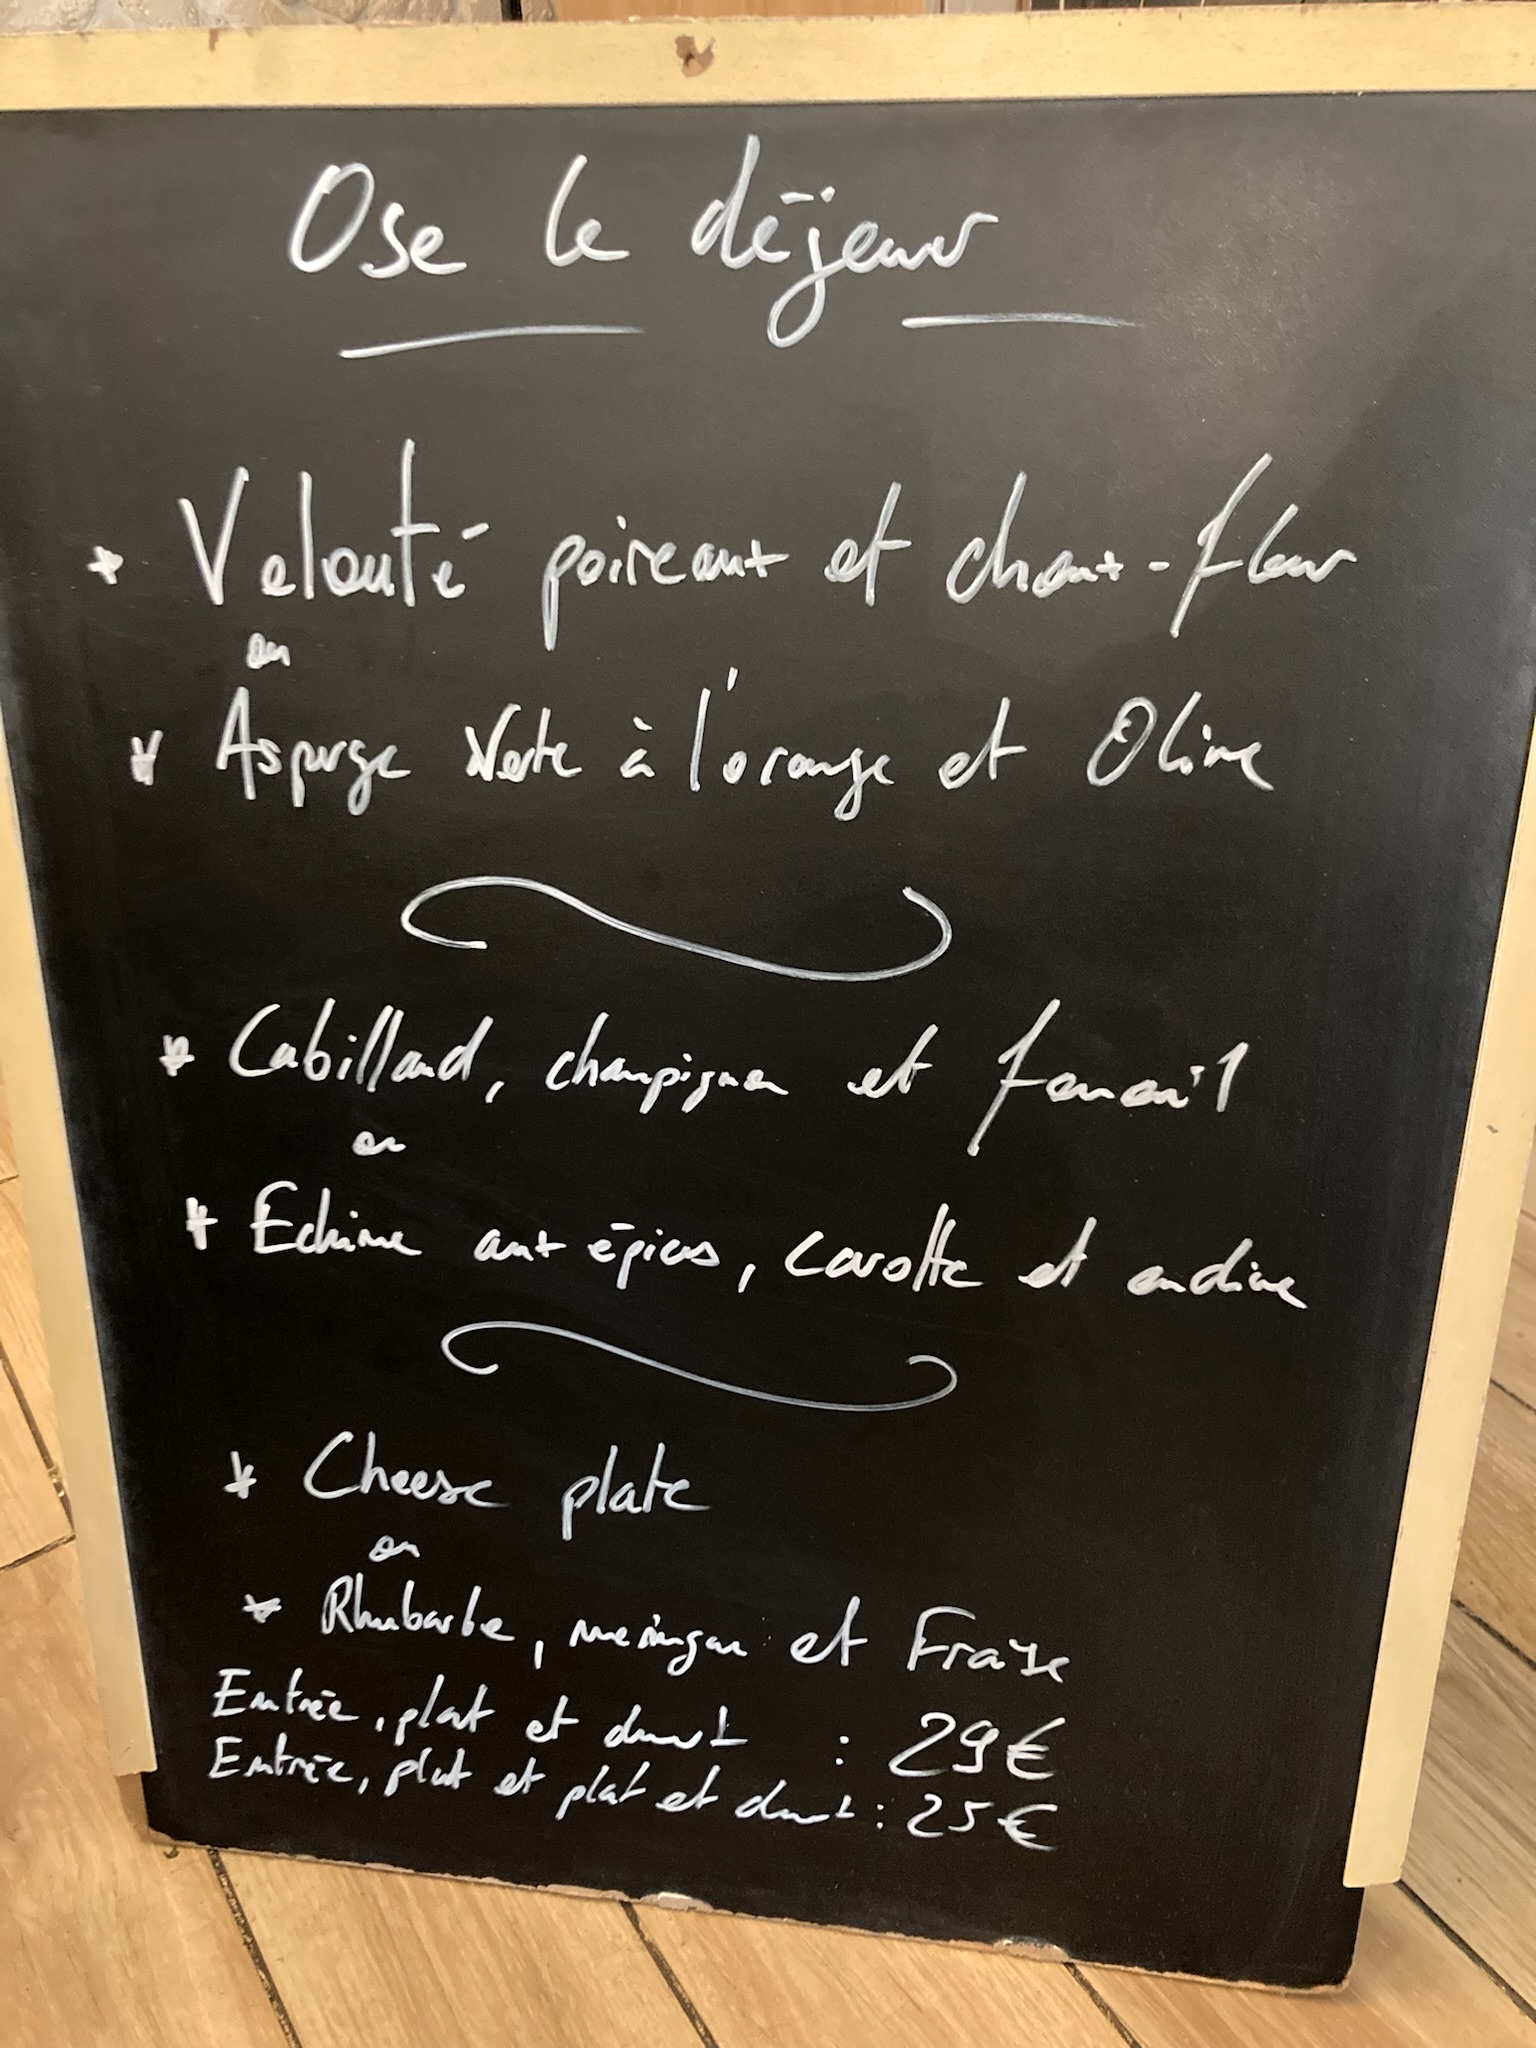 Ose le déjeuner
* Velouté poireaux et choux-fleur
ou
* Asperge Verte à l'orange et Olive
* Cabillaud, champignon et fenouil
ou
* Echine aux épices, carotte et endive
* Cheese plate
ou
* Rhubarbe, meringue et Fraise
Entrée, plat et dessert : 29€
Entrée, plat et plat et dessert : 25€